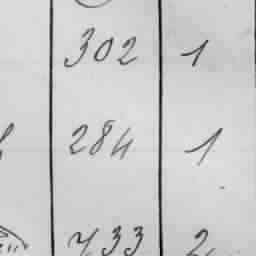 302 1
284 1
733 2